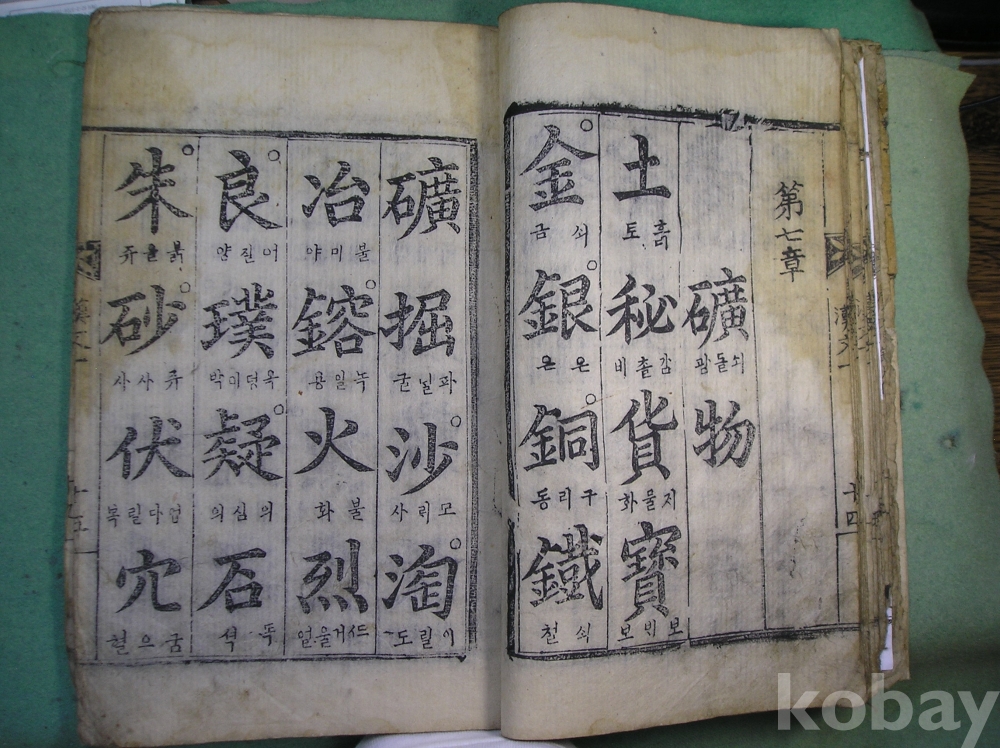 第七章
礦 쇠돌광
物
土 흙토
秘 감촐비
貨 화
寶 보ᄇᆡ보
金 쇠금
銀 은은
銅 구리동
鐵 쇠철
礦
掘 파굴
沙 모사
淘 이릴도
冶 불미야
鎔 녹일용
火 불화
烈 열
良 어진양
璞 옥덩이박
疑 의심의
石 돌석
朱 붉을쥬
砂 쥬사사
伏 업다릴복
穴 굼으혈
十四
kobay